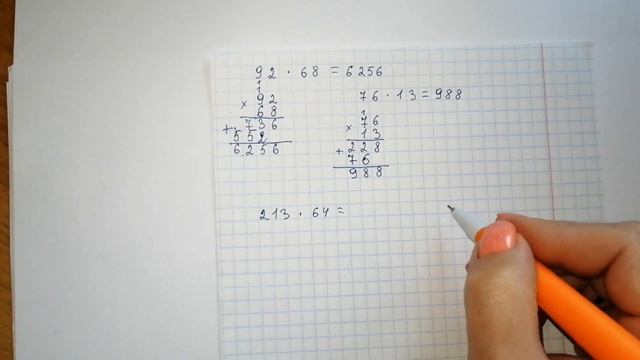 92 · 68 = 6256
1
× 92
68
+ 736
552
6256
76 · 13 = 988
1
× 76
13
+ 228
76
988
213 · 64 =